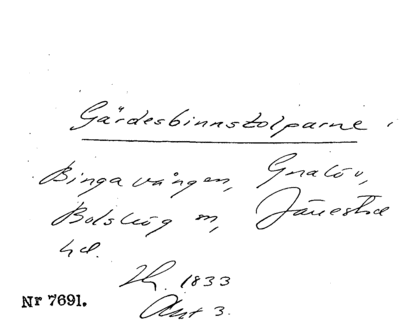 Gärdesbinnstolparne i
Bingavången, Gnalöv,
Bolshög m, Järrestad
hd.
1833
Akt 3.
Nr 7691.